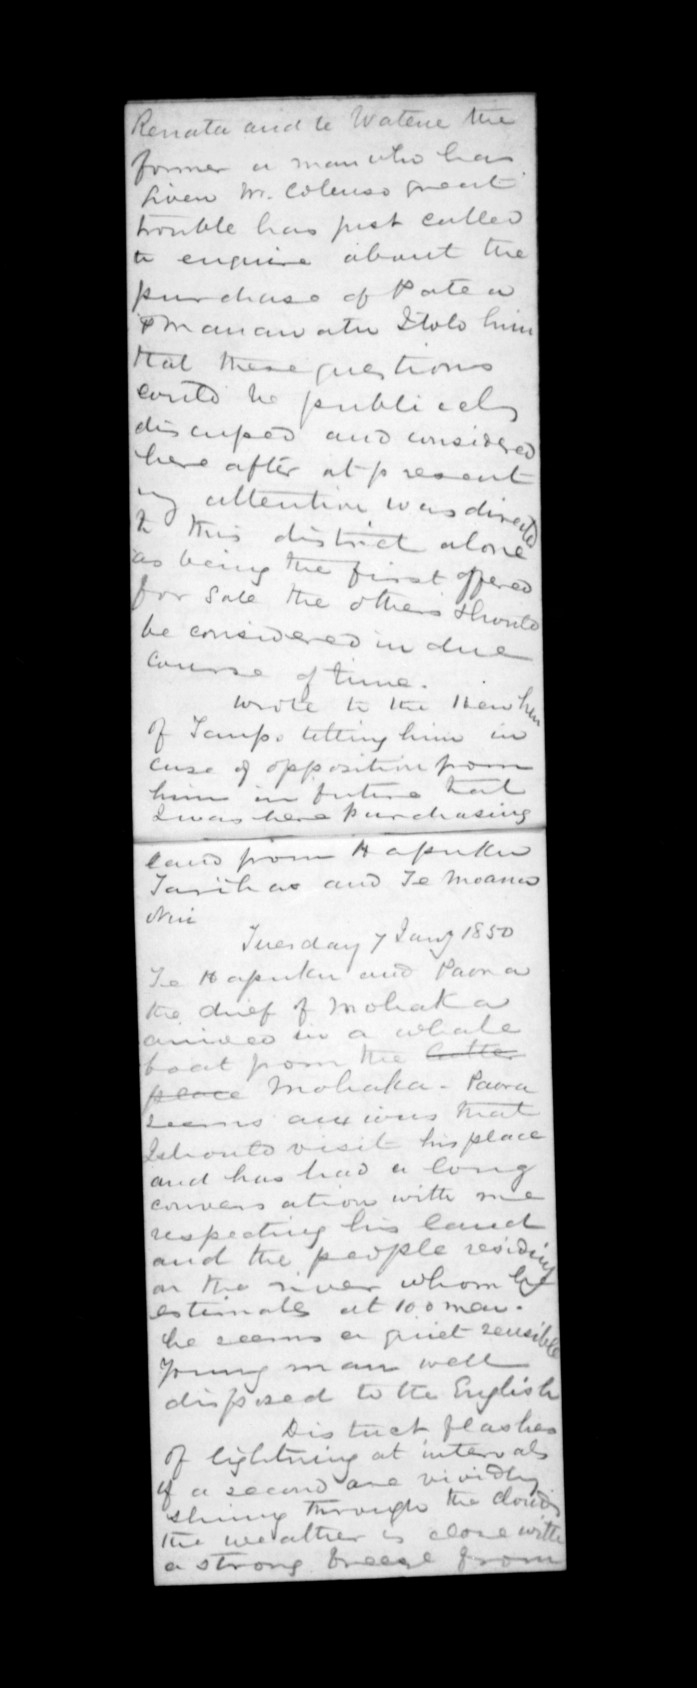 Renata and te Watene the
former a man who has
given Mr. Colenso great
trouble has just called
to enquire about the
purchase of Patea
& Manawatu I told him
that these questions
could be publicly
discussed and considered
here after at present
my attention was directed
to this district alone
as being the first offered
for sale the others should
be considered in due
course of time.
Wrote to the Heuheu
of Taupo telling him in
case of opposition from
him in future that
I was here purchasing
land from Hapuku
Tareha and Te Moana
Nui
Tuesday 7 Jany 1850
Te Hapuku and Paora
the chief of Mohaka
arrived in a whale
boat from the
Mohaka. Paora
seems anxious that
I should visit his place
and has had a long
conversation with me
respecting his land
and the people residing
on the river whom he
estimates at 100 men.
he seems a quiet sensible
young man well
disposed to the English
Distinct flashes
of lightning at intervals
of a second are vividly
shining through the clouds
the weather is close with
a strong breeze from